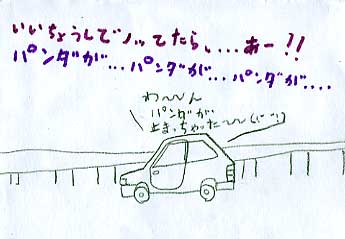 いいちょうしでノッてたら、...あー!!
パンダが...パンダが...パンダが....
わ〜〜ん
パンダが
止まっちゃった〜〜